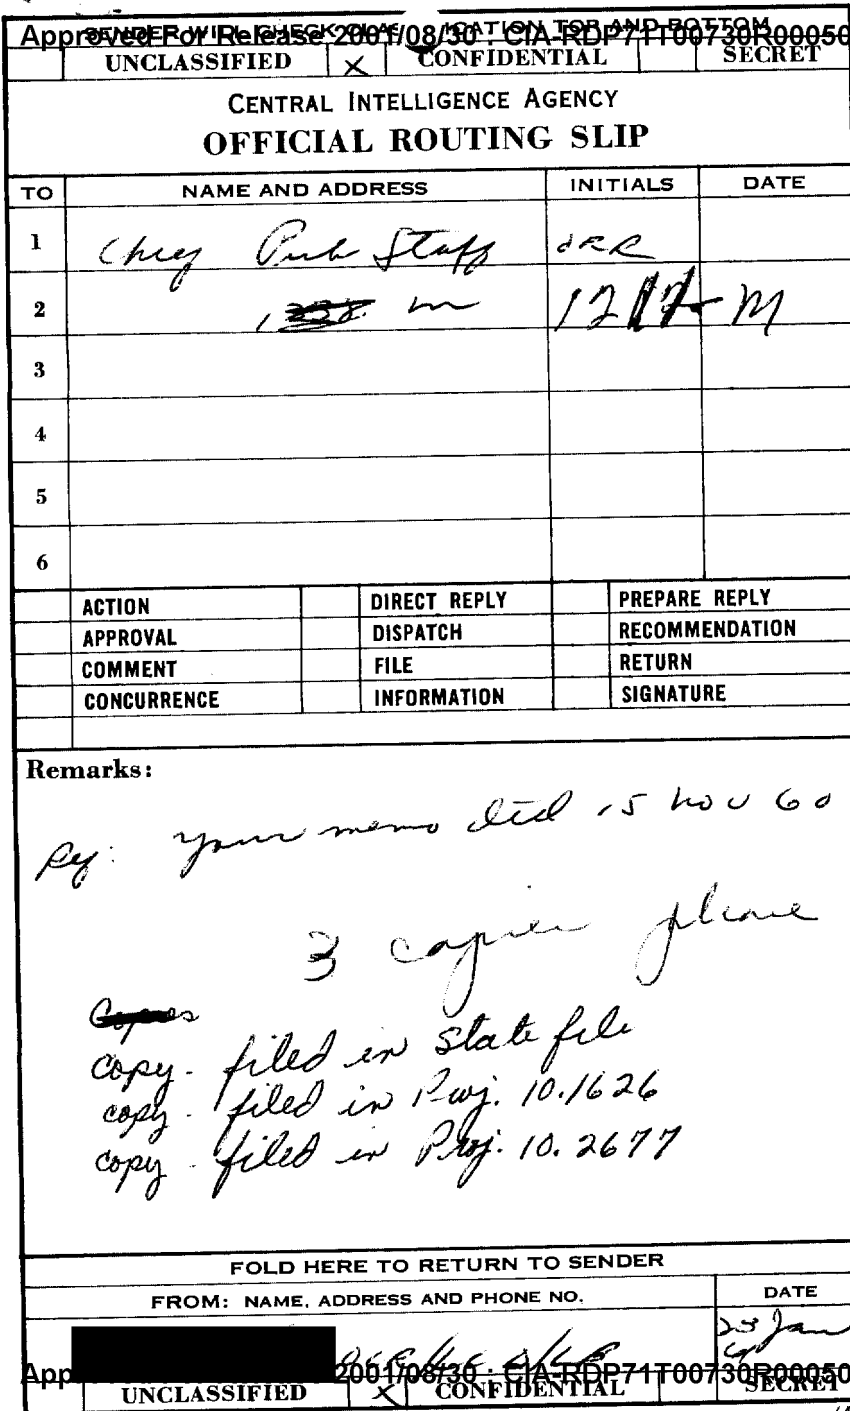 SENDER WILL CHECK CLASSIFICATION TOP AND BOTTOM
Approved For Release 2001/08/30 : CIA-RDP71T00730R00050
UNCLASSIFIED X CONFIDENTIAL SECRET
CENTRAL INTELLIGENCE AGENCY
OFFICIAL ROUTING SLIP
TO NAME AND ADDRESS INITIALS DATE
1 Chief Pub Staff ORR
2 1217-M
3
4
5
6
ACTION DIRECT REPLY PREPARE REPLY
APPROVAL DISPATCH RECOMMENDATION
COMMENT FILE RETURN
CONCURRENCE INFORMATION SIGNATURE
Remarks:
Ref: Your memo dtd 15 Nov 60
3 copies please
Copies
copy - filed in State file
copy - filed in Proj. 10.1626
copy - filed in Proj. 10.2677
FOLD HERE TO RETURN TO SENDER
FROM: NAME, ADDRESS AND PHONE NO. DATE
23 Jan
App 2001/08/30 : CIA-RDP71T00730R00050
UNCLASSIFIED X CONFIDENTIAL SECRET